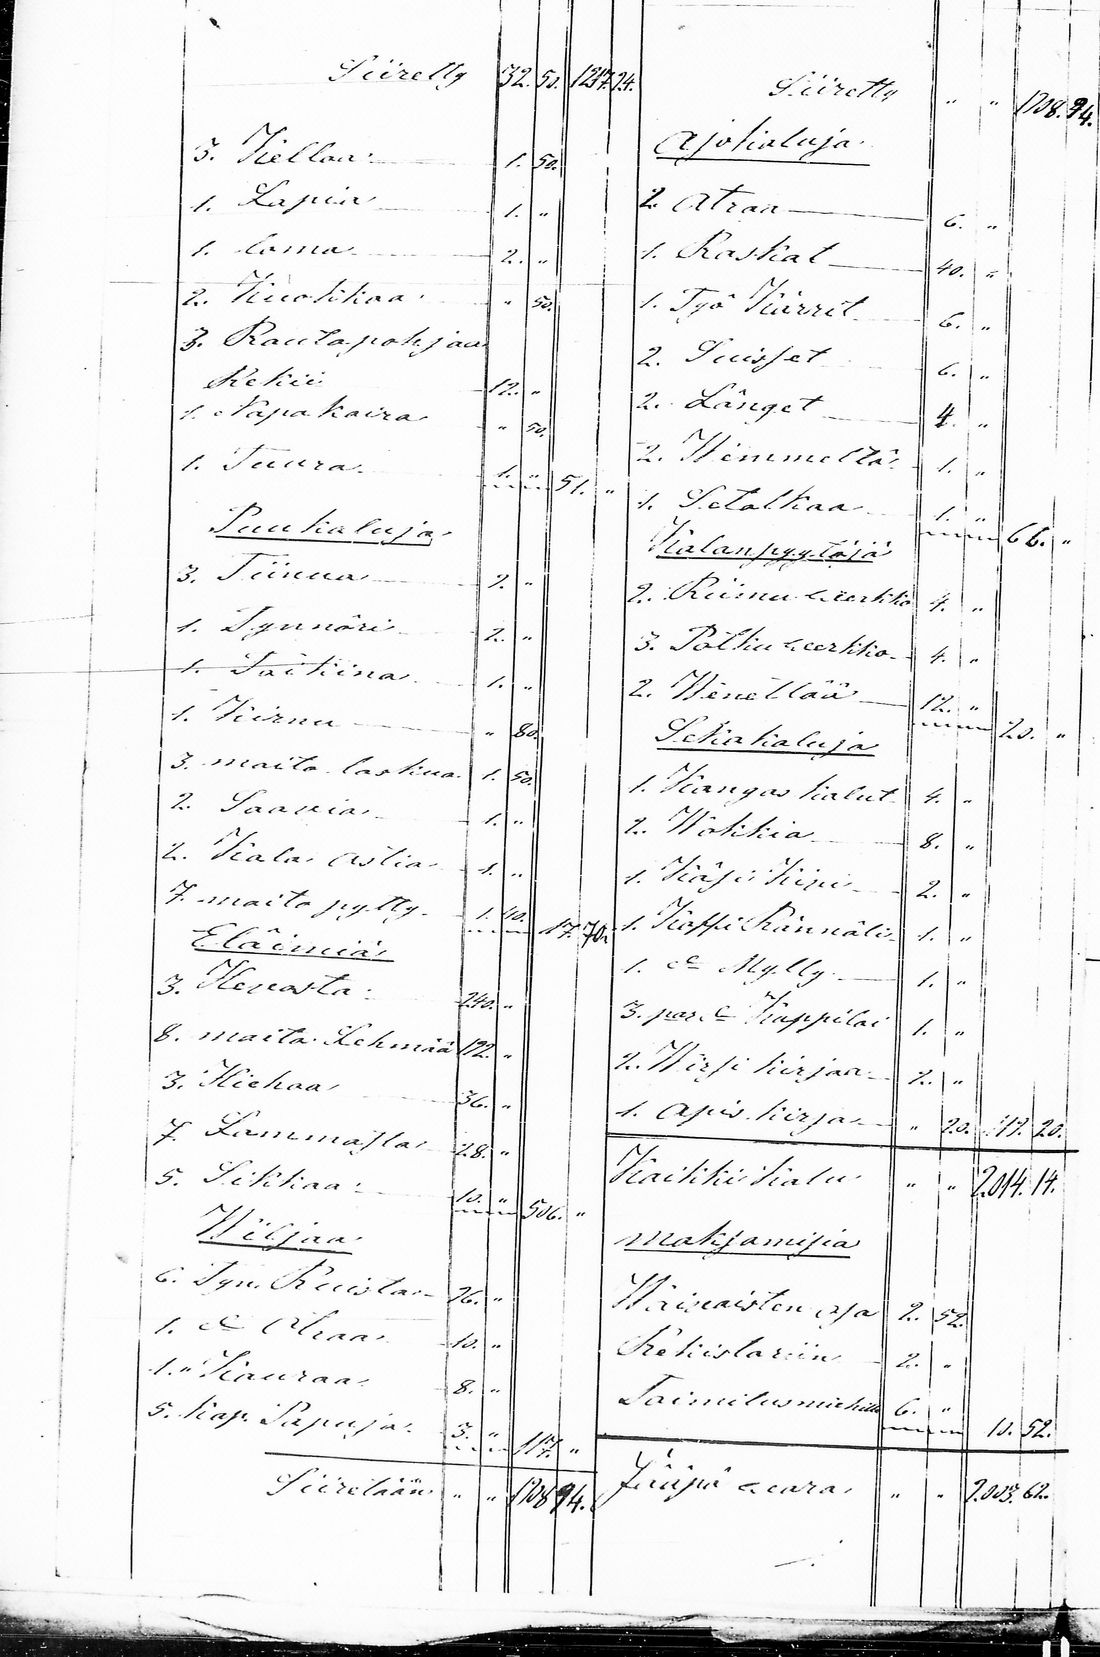 Siiretty 32. 50. 1217. 24.
3. Kelloa 1. 50.
1. Lapia 1. "
1. loma 2. "
2. Kuokkaa " 50.
3. Rautapohjan
Rekiä 12. "
1. Napakaira " 50.
1. Tuura 1. " 51. "
Puukaluja
3. Tiinua 2. "
1. Tynnöri 2. "
1. Taikina 1. "
1. Kirnu " 80.
3. maito laskua 1. 50.
2. Saavia 1. "
2. Kala astia 1. "
7. maito pytty 1. 40. 17. 70.
Eläimiä
3. Hevosta 240. "
8. maito Lehmää 192. "
3. Hiehoa 36. "
7. Lammasta 28. "
5. Sikkaa 10. " 506. "
Wiljaa
6. Tyn. Ruista 96. "
1. d:o Ohraa 10. "
1. " Kauraa 8. "
5. kap. Papuja 3. " 117. "
Siiretään " " 1708 94.
Siiretty " " 1708. 94.
Ajokaluja
2. Atraa 6. "
1. Raskat 40. "
1. Työ Kärrit 6. "
2. Suisset 6. "
2. Länget 4. "
2. Wemmeltä 1. "
1. Setolkaa 1. " 66. "
Kalanpyytöjä
2. Riimu verkko 4. "
3. Potku verkko 4. "
2. Wenettää 12. " 20. "
Sekakaluja
1. Kangas kalut 4. "
2. Wokkia 8. "
1. Käsi Kivi 2. "
1. Kaffi Pännäli 1. "
1. d:o Mylly 1. "
3. par d:o Kuppiloi 1. "
2. Wirsi kirjaa 2. "
1. Apis kirja " 20. 19. 20.
Kaikki Kalu " " 2,014. 14.
maksamisia
Waivaisten osa 2. 52.
Rekistariin 2. "
Toimitusmiehille 6. " 10. 52.
Jääpä vara " " 2,003. 62.